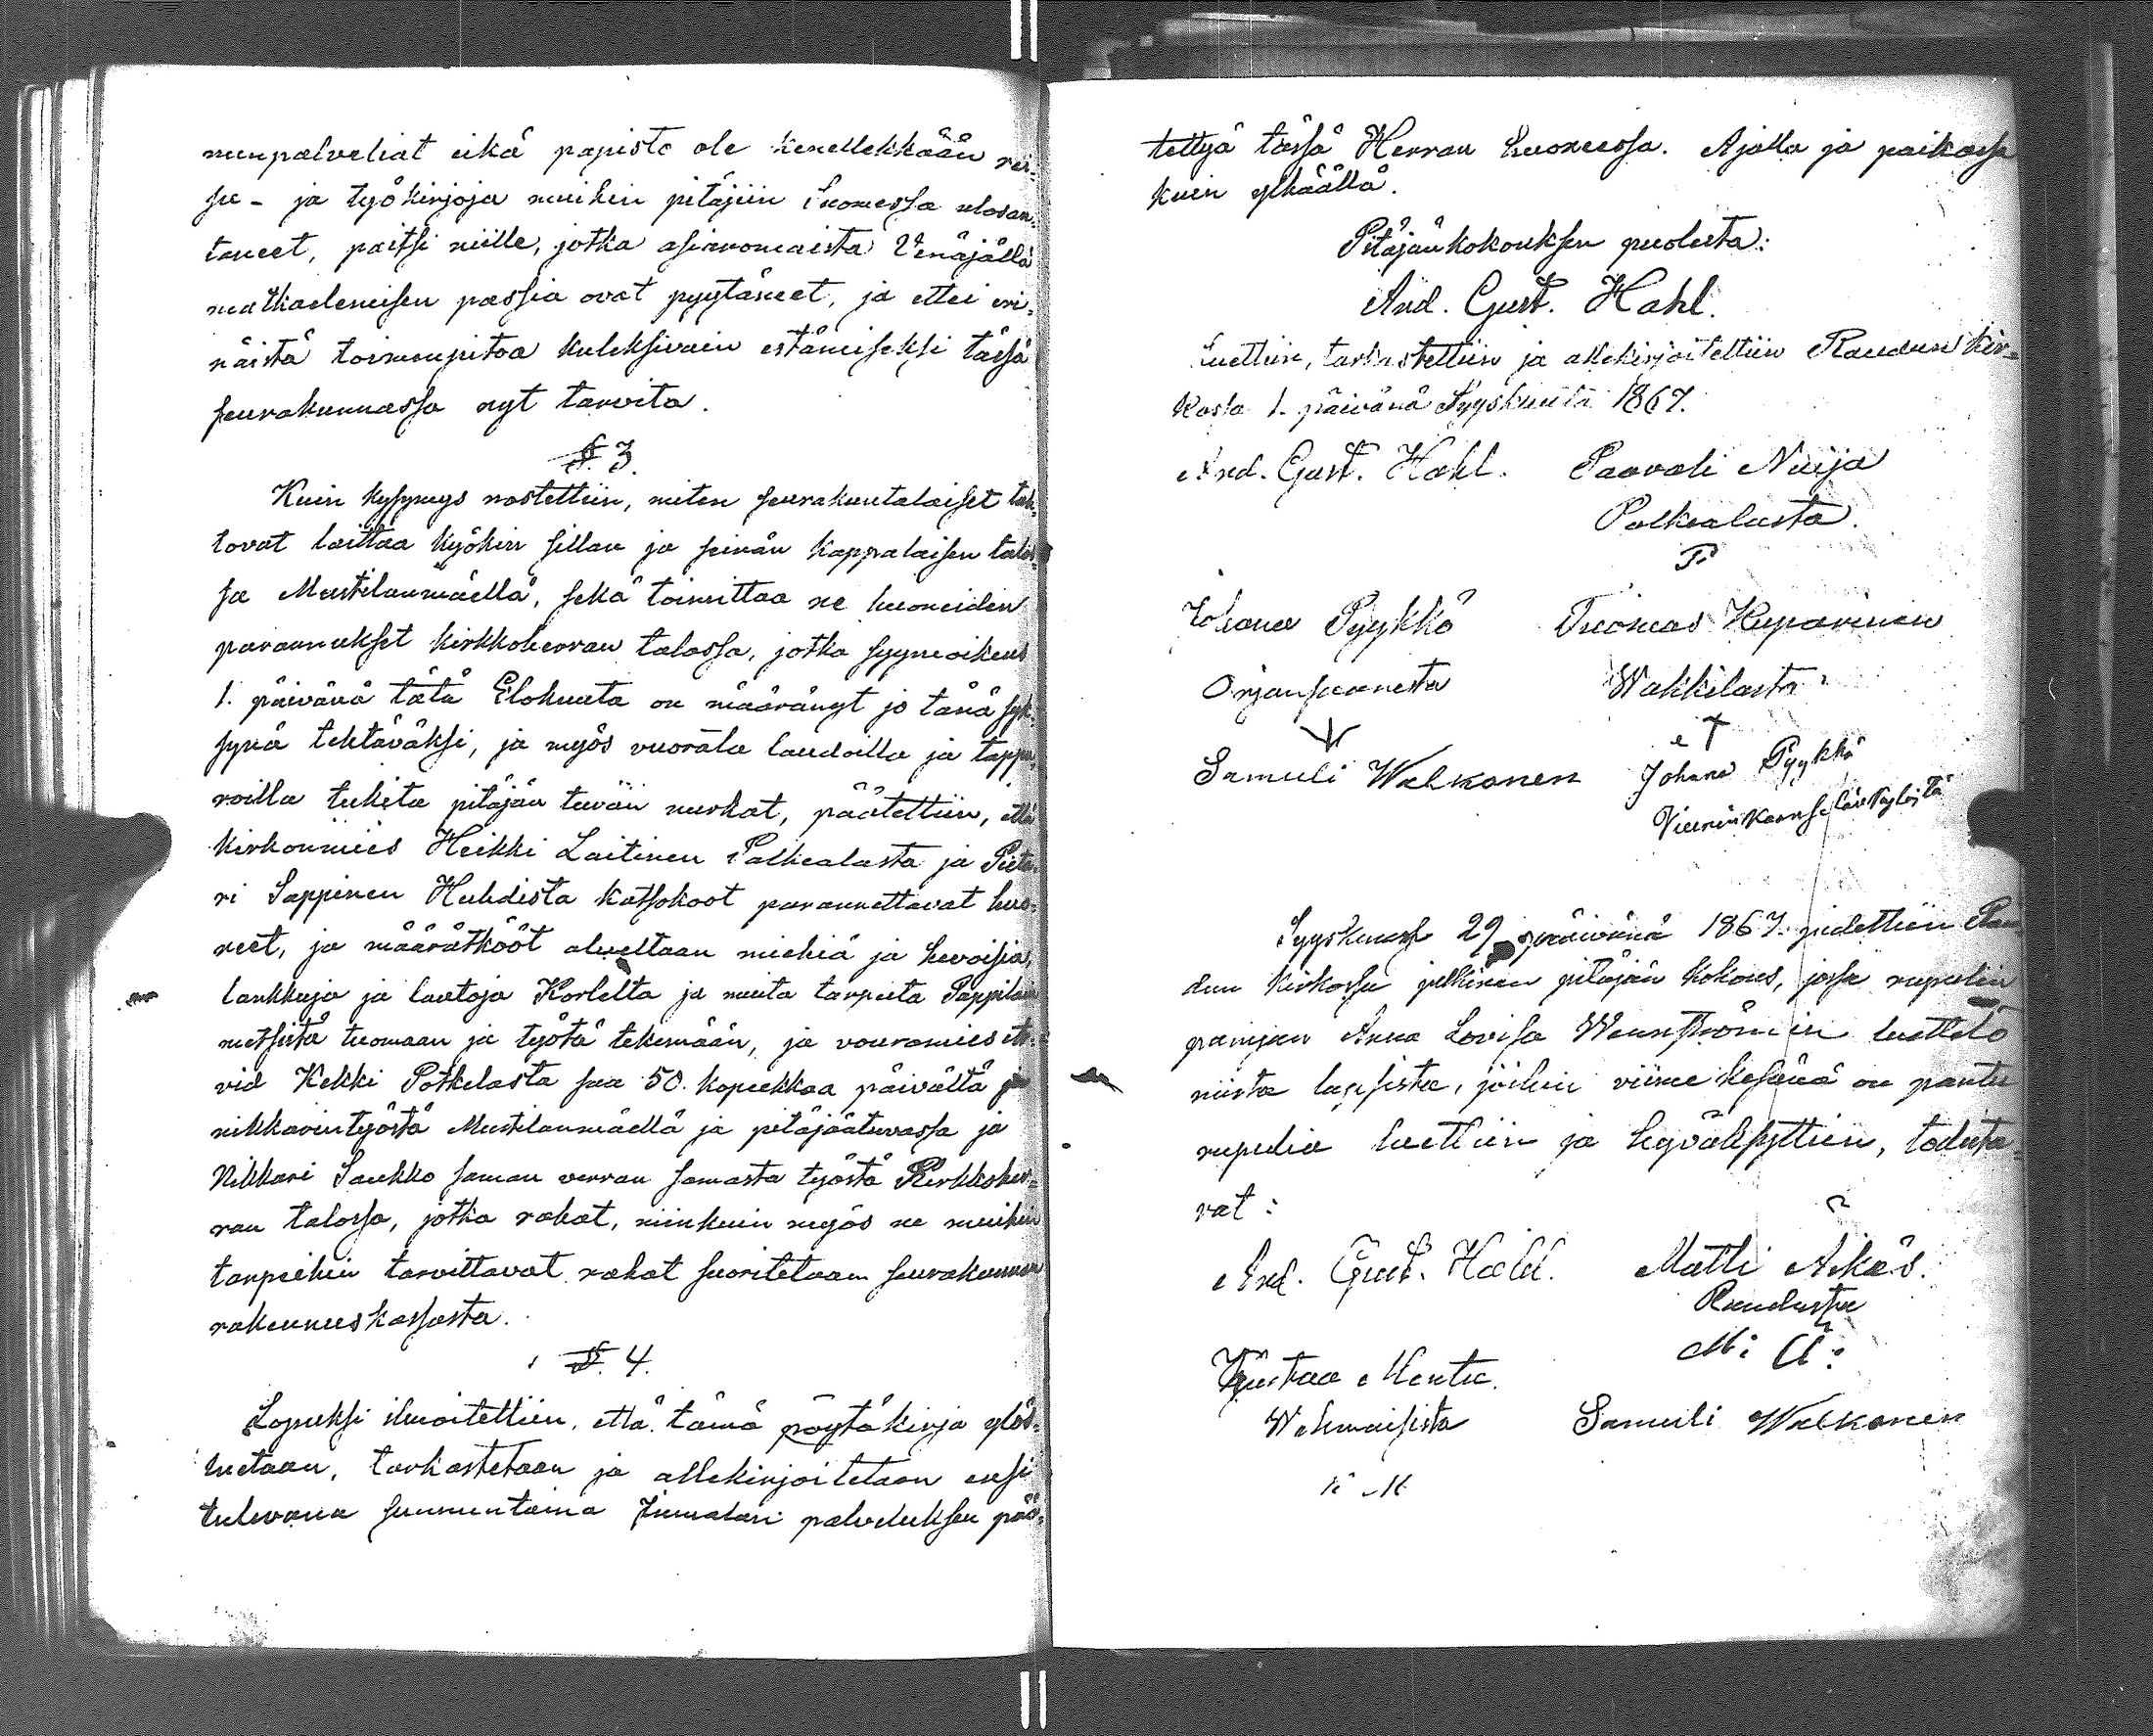 nunpalveliat eikä papisto ole kenellekkään rei-
su- ja työkirjoja muihin pitäjiin Suomessa ulosan-
taneet, paitsi niille, jotka asianomaista Venäjällä
matkaelemisen passia ovat pyytäneet, ja ettei eri-
näistä toimenpitoa kuleksivain estämiseksi tässä
seurakunnassa nyt tarvita.
§ 3.
Kuin kysymys nostettiin, miten seurakuntalaiset tah-
tovat laittaa kyökin sillan ja seinän kappalaisen talos-
sa Mustilanmäellä, sekä toimittaa ne huoneiden
parannukset kirkkoherran talossa, jotka syyneoikeus
1. päivänä tätä Elokuuta on määrännyt jo tänä syk-
synä tehtäväksi, ja myös vuorata laudoilla ja tappu-
roilla tukita pitäjän tuvan nurkat, päätettiin, että
Kirkonmies Heikki Laitinen Palkealasta ja Pieta-
ri Sappinen Huhdista katsokoot parannettavat huo-
neet, ja määrätkööt alueltaan miehiä ja hevoisia,
lankkuja ja lautoja Korlelta ja muita tarpeita Pappilan
metsistä tuomaan ja työtä tekemään, ja vouramies At-
vid Kekki Potkelasta saa 50. kopeekkaa päivältä ja
nikkarintyöstä Mustilanmäellä ja pitäjäätuvassa ja
Nikkari Saukko saman verran samasta työstä Kirkkoher-
ran talossa, jotka rahat, niinkuin myös ne muihin
tarpeihin tarvittavat rahat suoritetaan seurakunnan
rakennuskassasta.
§ 4.
Lopuksi ilmoitettiin, että tämä pöytäkirja ylös-
luetaan, tarkastetaan ja allekirjoitetaan ensi
tulevana sunnuntaina Jumalan palveluksen pää-
tettyä tässä Herran huoneessa. Ajalla ja paikassa
kuin ylhäällä.
Pitäjänkokouksen puolesta:
And. Gust. Hahl.
Luettiin, tarkastettiin ja allekirjoitettiin Raudun kir-
kossa 1. päivänä Syyskuuta 1867.
And. Gust. Hahl. Paavali Naija
Palkealasta.
P
Johana Pyykkö Tuomas Kuparinen
Orjansaaresta Wakkilasta
Samuli Walkonen Johana Pyykkö
Syyskuussa 29 päivänä 1867. pidettiin Rau
dun kirkossa julkinen pitäjän kokous, jossa rupulin
panijan Anna Lovisa Wennströmin luettelo
niista lapsista, joihin viime kesänä on pantu
rupulia luettiin ja hyväksyttiin, todista-
vat:
And. Gust. Hahl. Matti Äikäs.
Raudusta
M: Ä:
Kustaa Mentu.
Wehmaisista Samuli Walkonen
K M